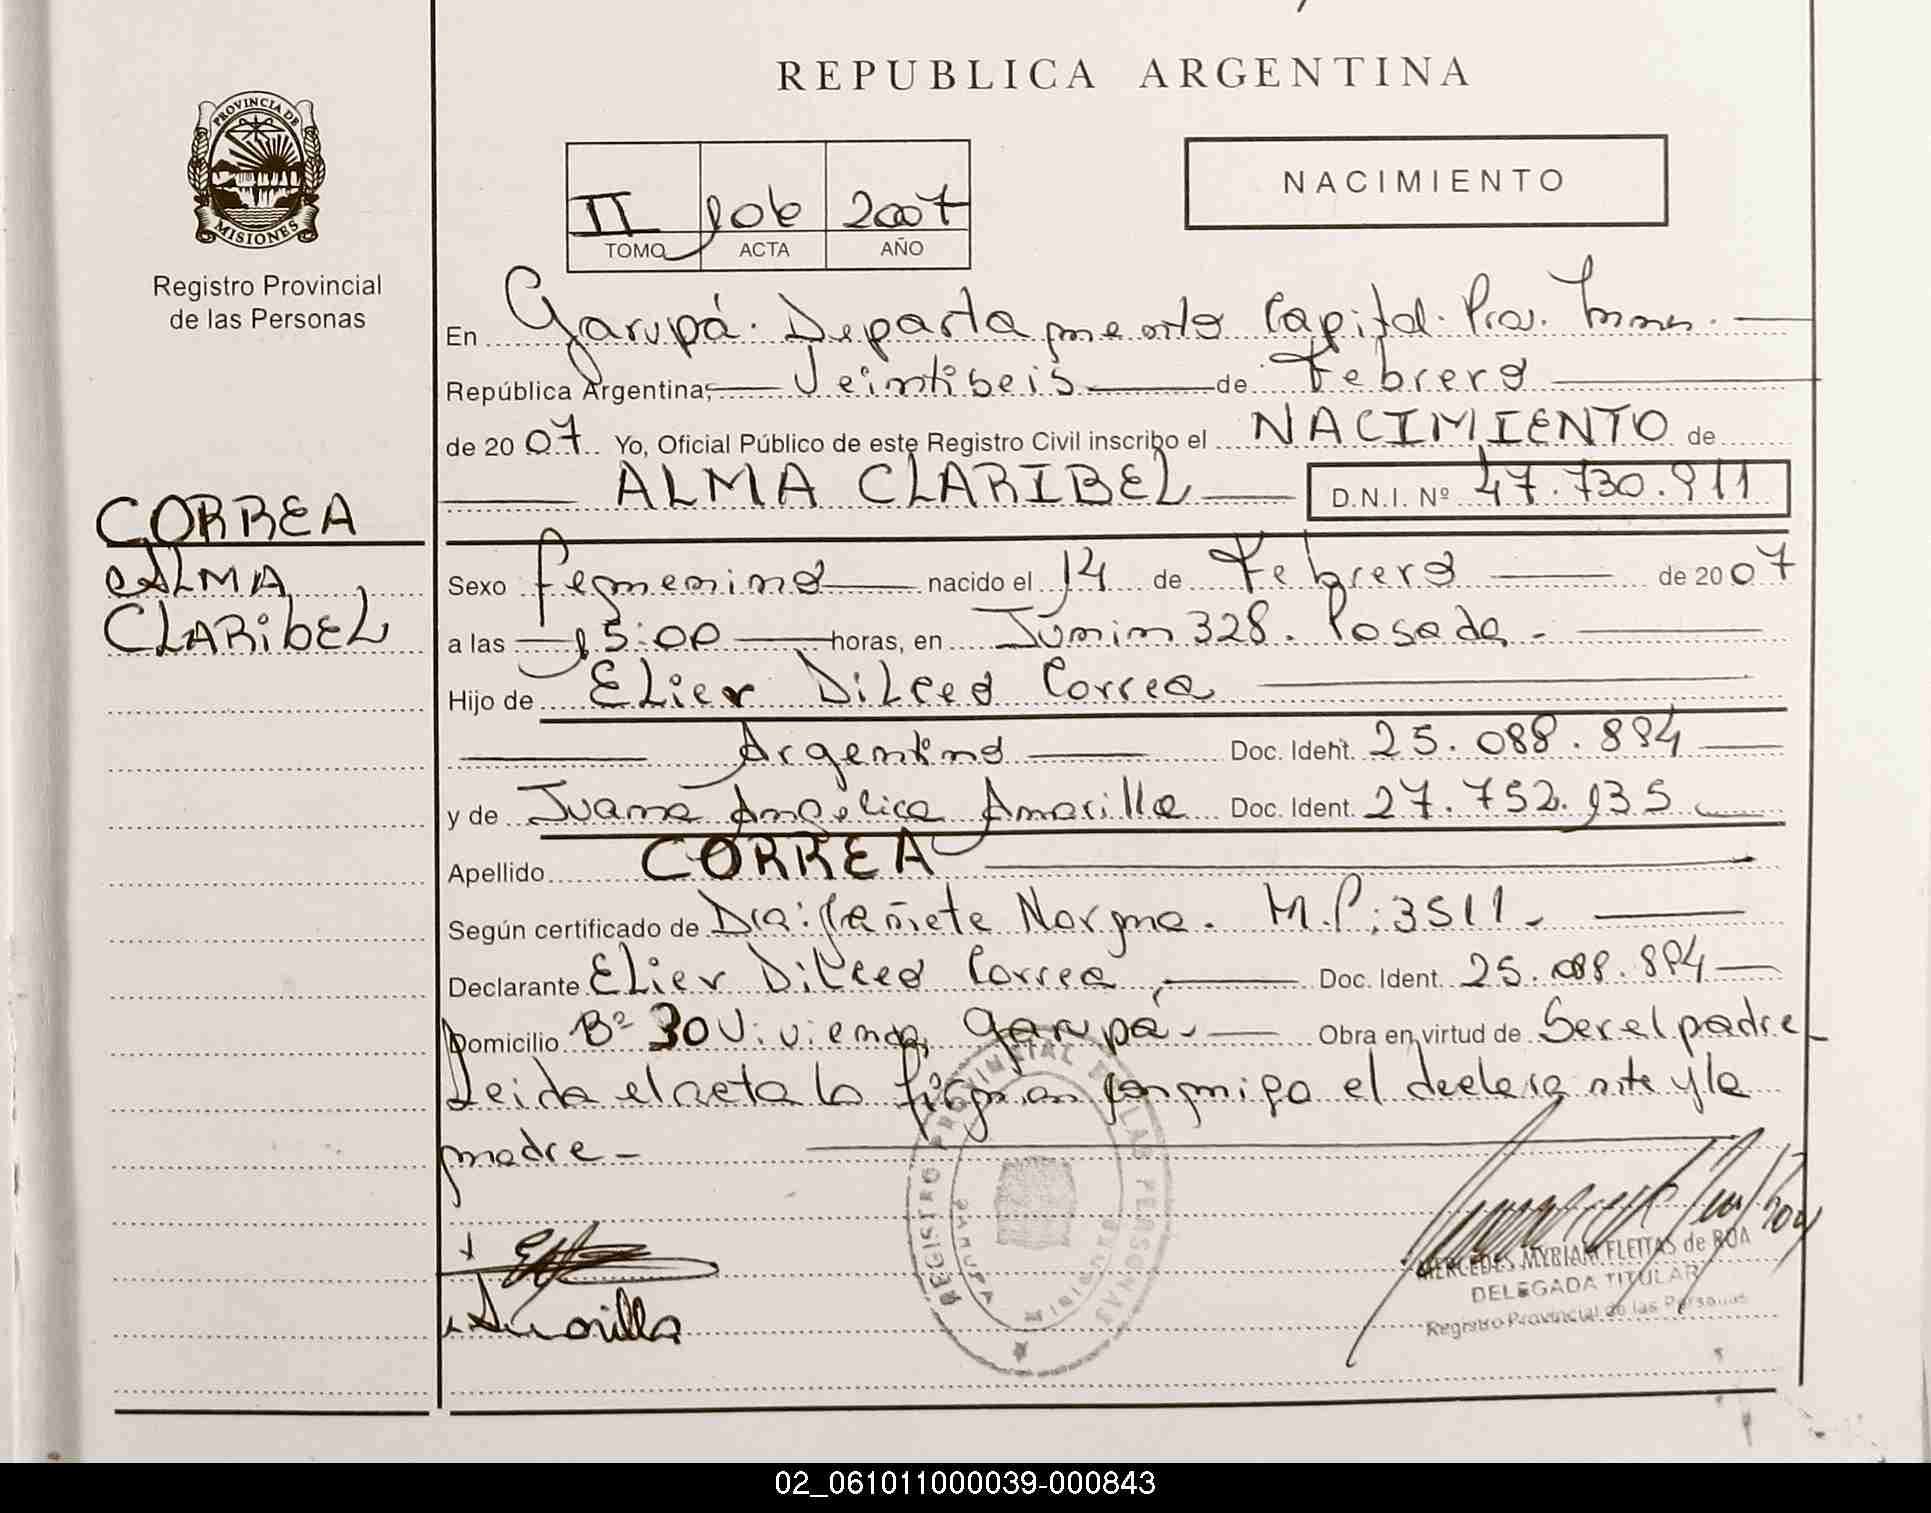 REPUBLICA ARGENTINA
PROVINCIA DE
MISIONES
Registro Provincial
de las Personas
II 106 2007
TOMO ACTA AÑO
NACIMIENTO
En Garupá. Departamento Capital. Prov. Mnes.
República Argentina, Veintiseis de Febrero
de 2007 Yo, Oficial Público de este Registro Civil inscribo el NACIMIENTO de
ALMA CLARIBEL D.N.I. Nº 47.730.911
CORREA
ALMA
CLARIBEL
Sexo femenino nacido el 14 de Febrero de 2007
a las 15:00 horas, en Junin 328. Posadas.
Hijo de Elier Dilceo Correa
Argentino Doc. Ident. 25.088.894
y de Juana Angelica Amarilla Doc. Ident. 27.752.135
Apellido CORREA
Según certificado de Dra: Cañete Norma. M.P: 3511.
Declarante Elier Dilceo Correa, Doc. Ident. 25.088.894
Domicilio Bº 30 Viviendas Garupá Obra en virtud de Ser el padre
Leida el acta la firman conmigo el declarante y la
madre
REGISTRO PROVINCIAL DE LAS PERSONAS
GARUPA
MISIONES
Amarilla
MERCEDES MYRIAM FLEITAS de ROA
DELEGADA TITULAR
Registro Provincial de las Personas
02_061011000039-000843